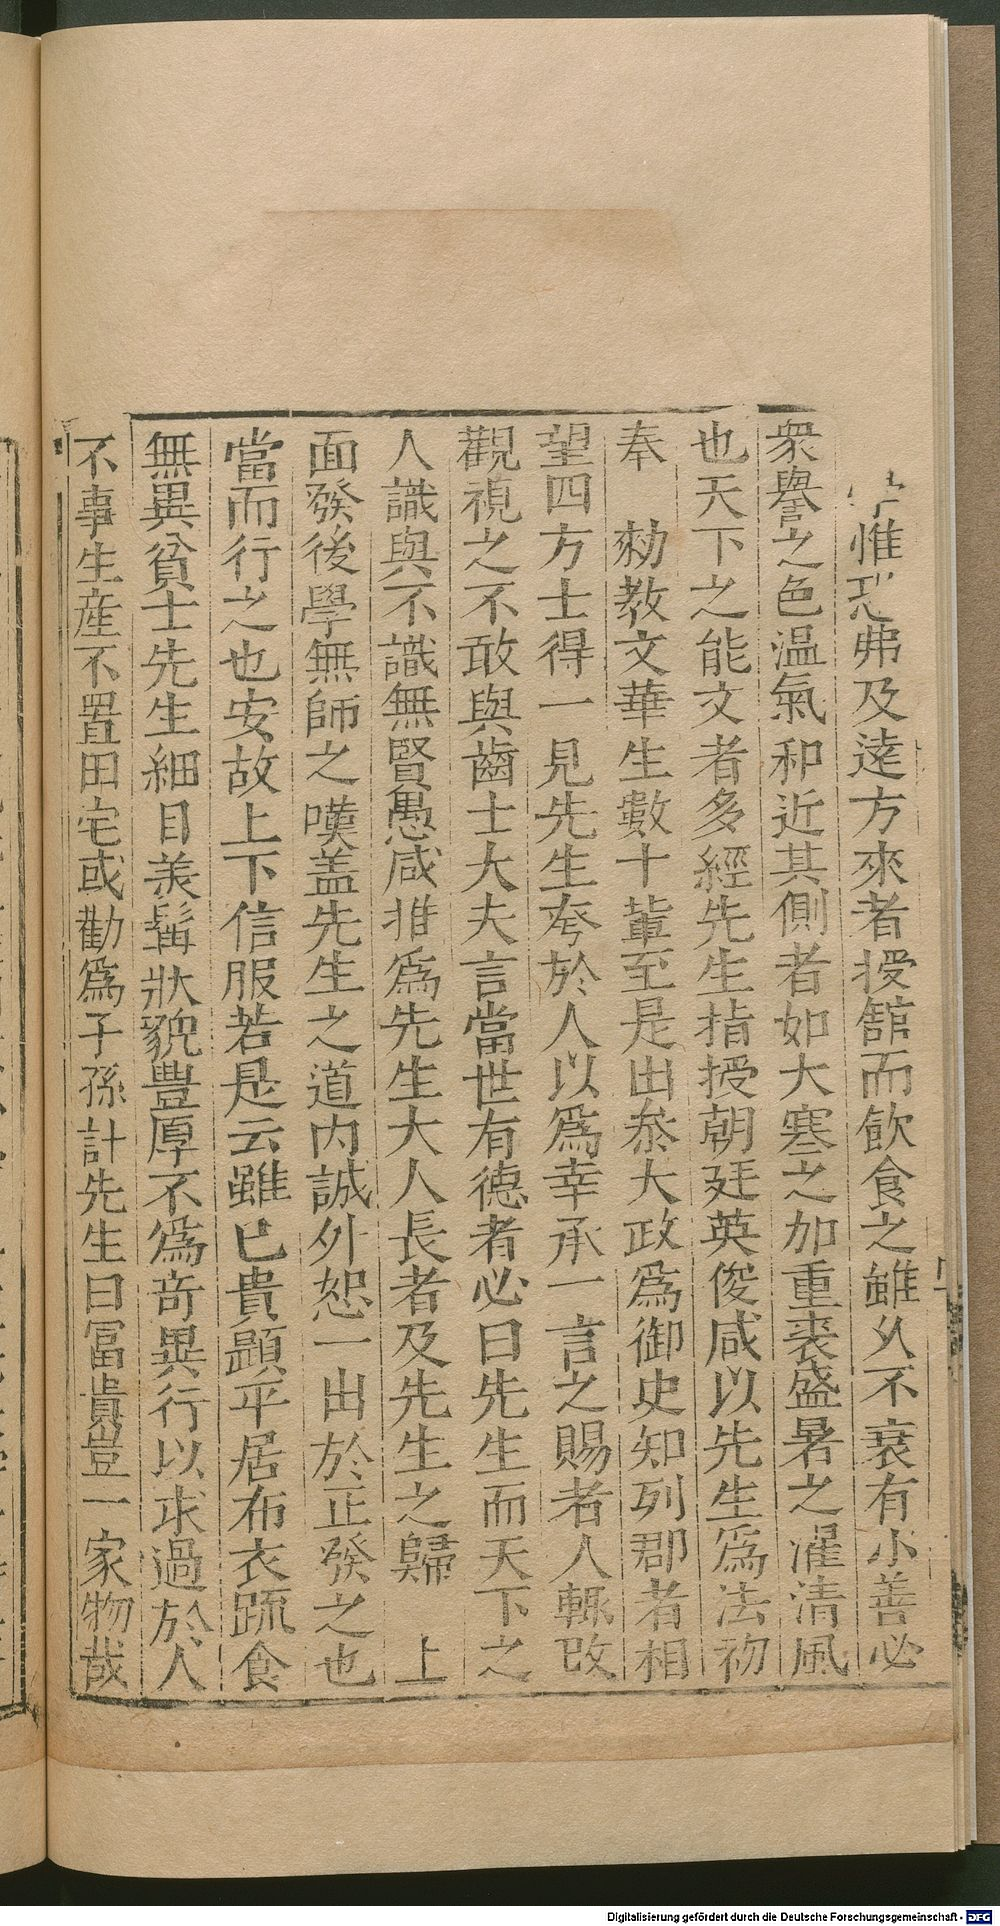 惟恐弗及逺方來者授館而飲食之雖乆不衰有小善必
衆譽之色温氣和近其側者如大寒之加重裘盛暑之濯清風
也天下之能文者多經先生指授朝廷英俊咸以先生爲法初
奉 勑教文華生數十輩至是出叅大政爲御史知列郡者相
望四方士得一見先生夸於人以爲幸承一言之賜者人輙改
觀視之不敢與齒士大夫言當世有德者必曰先生而天下之
人識與不識無賢愚咸推爲先生大人長者及先生之歸 上
面發後學無師之嘆盖先生之道内誠外恕一出於正發之也
當而行之也安故上下信服若是云雖已貴顯平居布衣蔬食
無異貧士先生細目美鬚狀貌豊厚不爲奇異行以求過於人
不事生産不置田宅或勸爲子孫計先生曰冨貴豈一家物哉
Digitalisierung gefördert durch die Deutsche Forschungsgemeinschaft - DFG